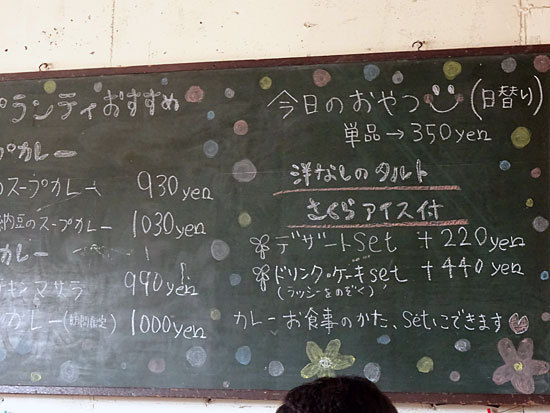 プランティおすすめ
プカレー
のスープカレー 930yen
納豆のスープカレー 1030yen
カレー
キンマサラ 990yen
のカレー 1000yen
今日のおやつ (日替り)
単品→350yen
洋なしのタルト
さくらアイス付
デザートset +220yen
ドリンク・ケーキset +440yen
(ラッシーをのぞく)
カレーお食事のかた、setにできます